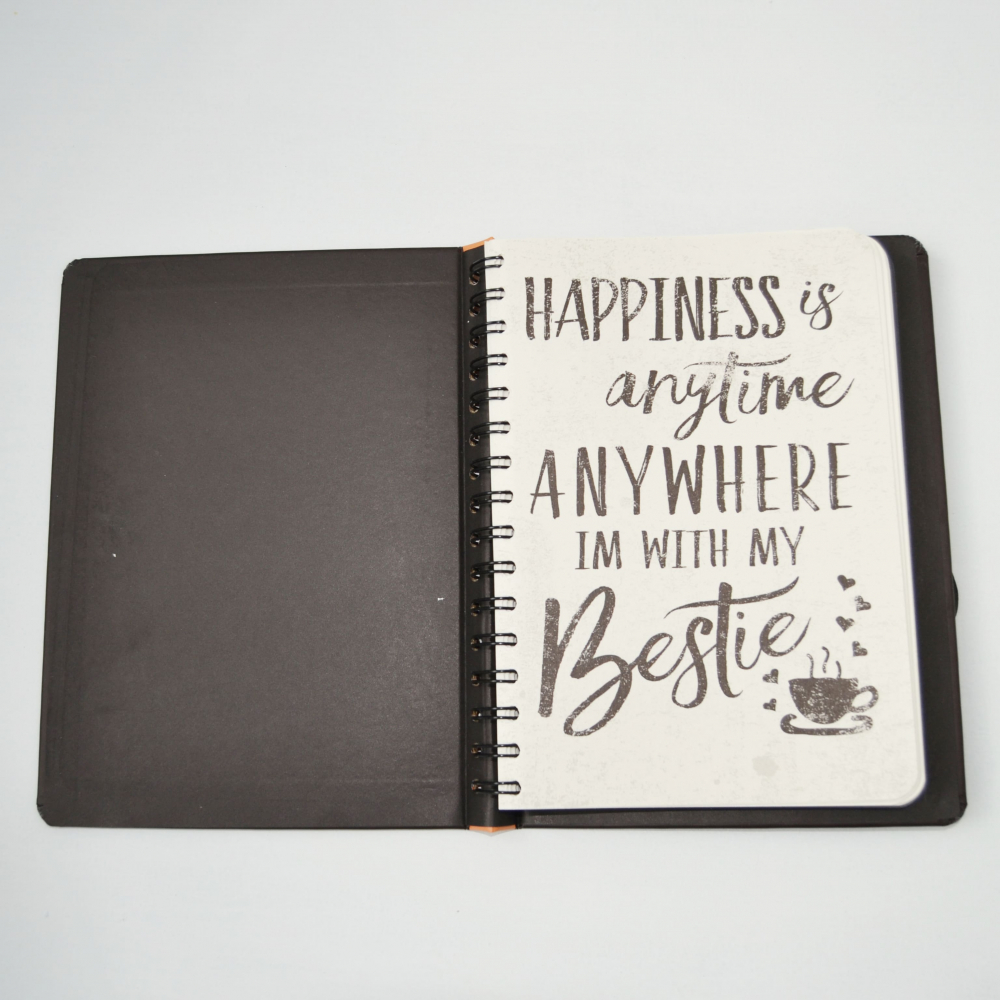 HAPPINESS is
anytime
ANYWHERE
IM WITH MY
Bestie